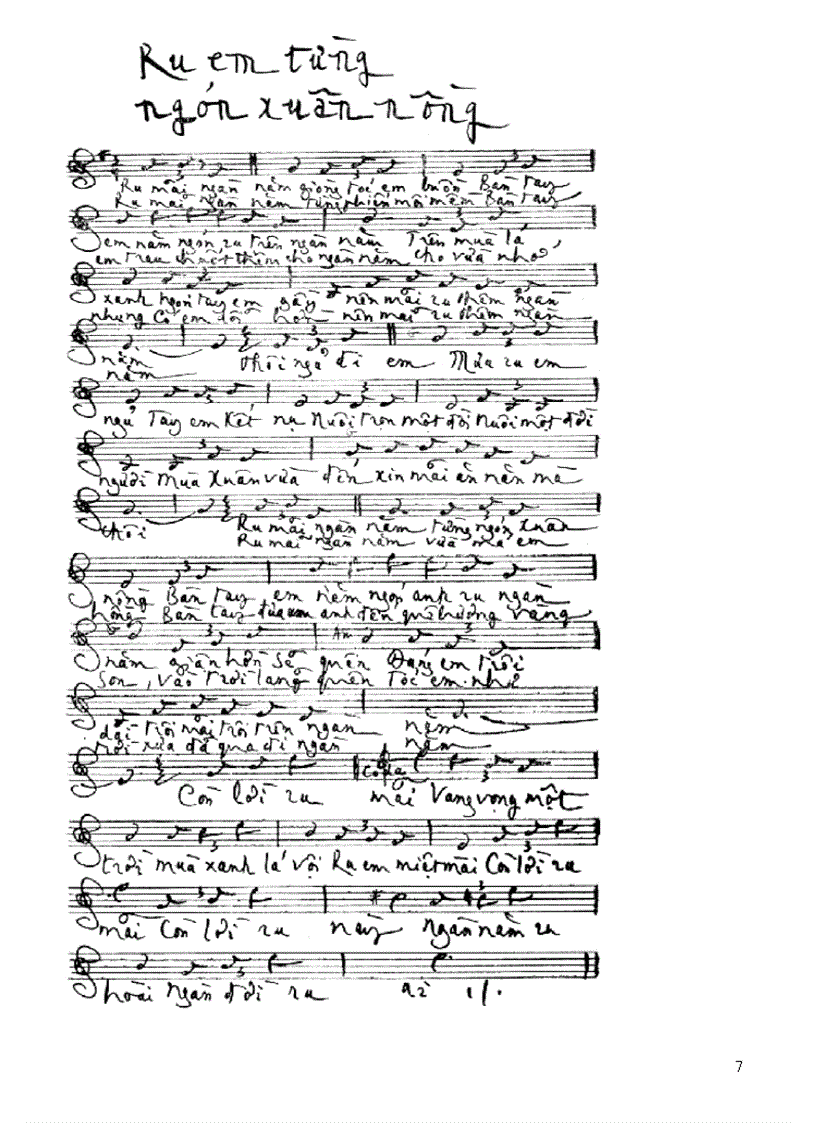 Ru em từng
ngón xuân nồng
Ru mãi ngàn năm giòng tóc em buồn Bàn tay
Ru mãi ngàn năm từng phiến môi mềm Bàn tay
em năm ngón ru trên ngàn năm Trên mùa lá
em trau chuốt thêm cho ngàn năm cho vừa nhớ
xanh ngón tay em gầy nên mãi ru thêm ngàn
nhưng có em dỗi hờn nên mãi ru thêm ngàn
năm Thôi ngủ đi em Mưa ru em
năm
ngủ Tay em kết nụ Nuôi trọn một đời Nuôi một đời
người Mùa xuân vừa đến xin mãi ăn năn mà
thôi Ru mãi ngàn năm từng ngón xuân
Ru mãi ngàn năm vừa má em
nồng Bàn tay em năm ngón anh ru ngàn
hồng Bàn tay đưa anh đến quê hương vàng
năm giận hờn sẽ quên Dáng em trôi
Am
son, vào trời lãng quên Tóc em như
dài trôi mãi trôi trên ngàn năm
trời xưa đã qua đi ngàn năm
Coda
Còn lời ru mãi Vang vọng một
trời mùa xanh lá vội Ru em miệt mài Còn lời ru
mãi Còn lời ru này Ngàn năm ru
hoài ngàn đời ru ai
7